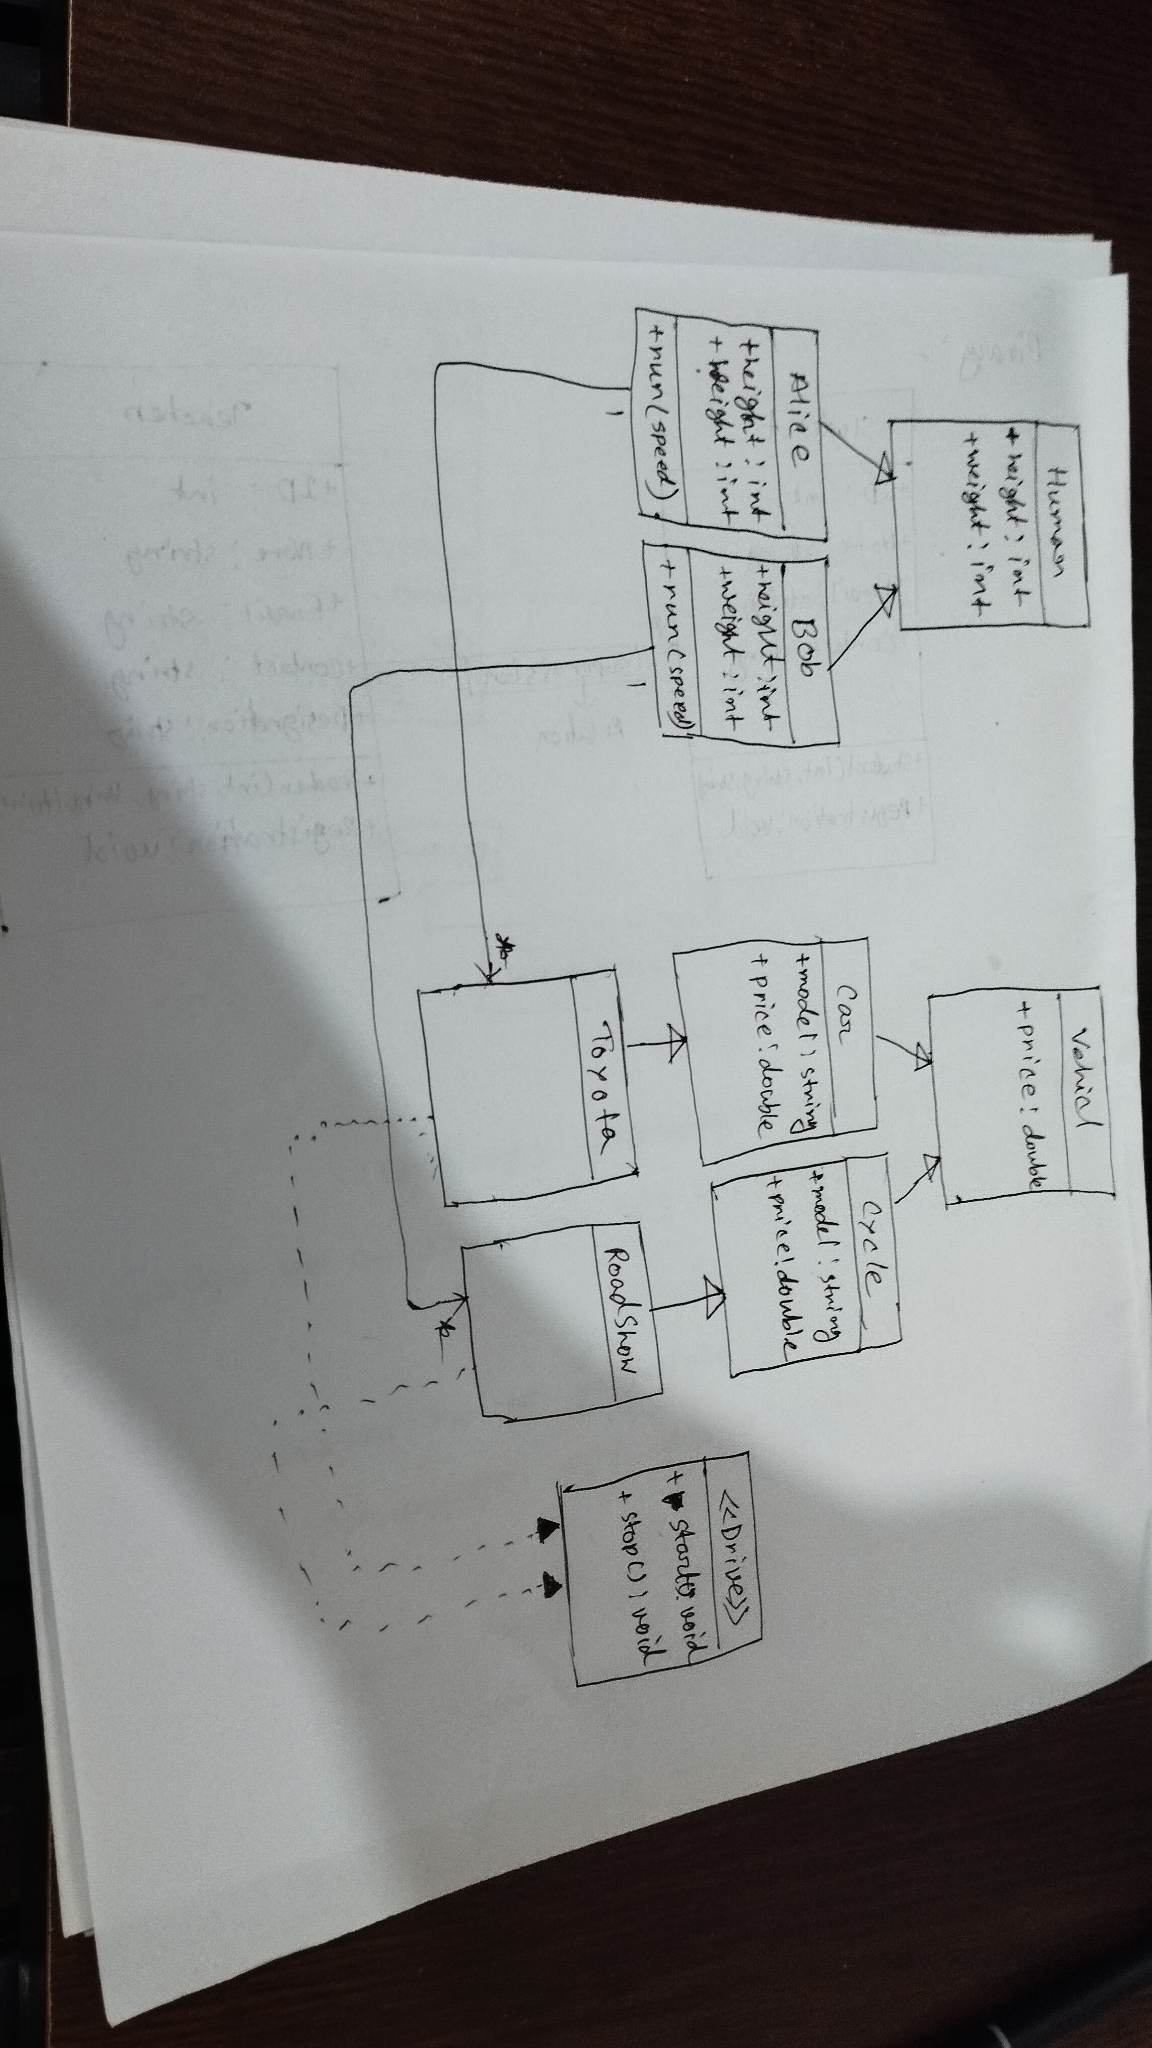 Human
+ height : int
+weight : int
Vehicl
+price : double
Alice
+height : int
+weight : int
+run(speed)
1
Bob
+height : int
+weight : int
+run(speed)
1
Car
+model : string
+ price : double
Cycle
+model : string
+price : double
Toyota
*
RoadShow
*
<<Drive>>
+ start() : void
+ stop() : void